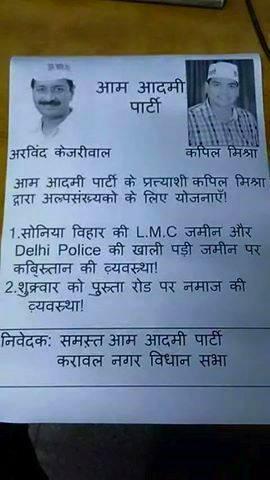 आम आदमी
पार्टी
अरविंद केजरीवाल
कपिल मिश्रा
आम आदमी पार्टी के प्रत्याशी कपिल मिश्रा
द्वारा अल्पसंख्यको के लिए योजनाएँ!
1.सोनिया विहार की L.M.C जमीन और
Delhi Police की खाली पड़ी जमीन पर
कब्रिस्तान की व्यवस्था!
2.शुक्रवार को पुस्ता रोड पर नमाज की
व्यवस्था!
निवेदक: समस्त आम आदमी पार्टी
करावल नगर विधान सभा